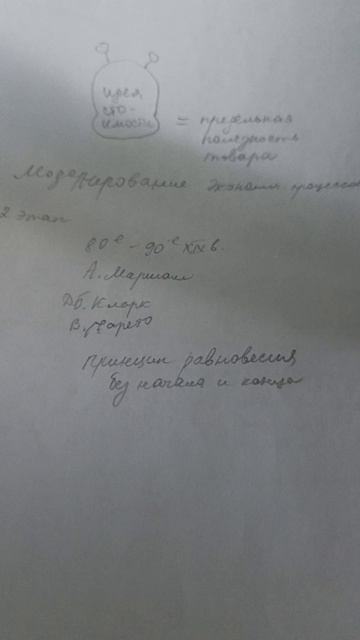 идея
сто-
имости
= предельная
полезность
товара
Моделирование эконом процессов
2 этап
80е - 90е XIX в.
А. Маршал
Дб. Кларк
В. Парето
принцип равновесия
без начала и конца